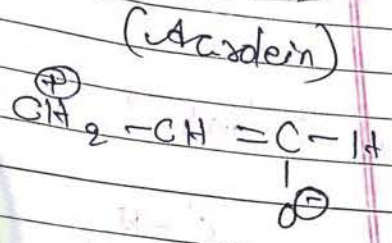 (Acrolein)
⊕
CH2-CH=C-H
|
O⊖